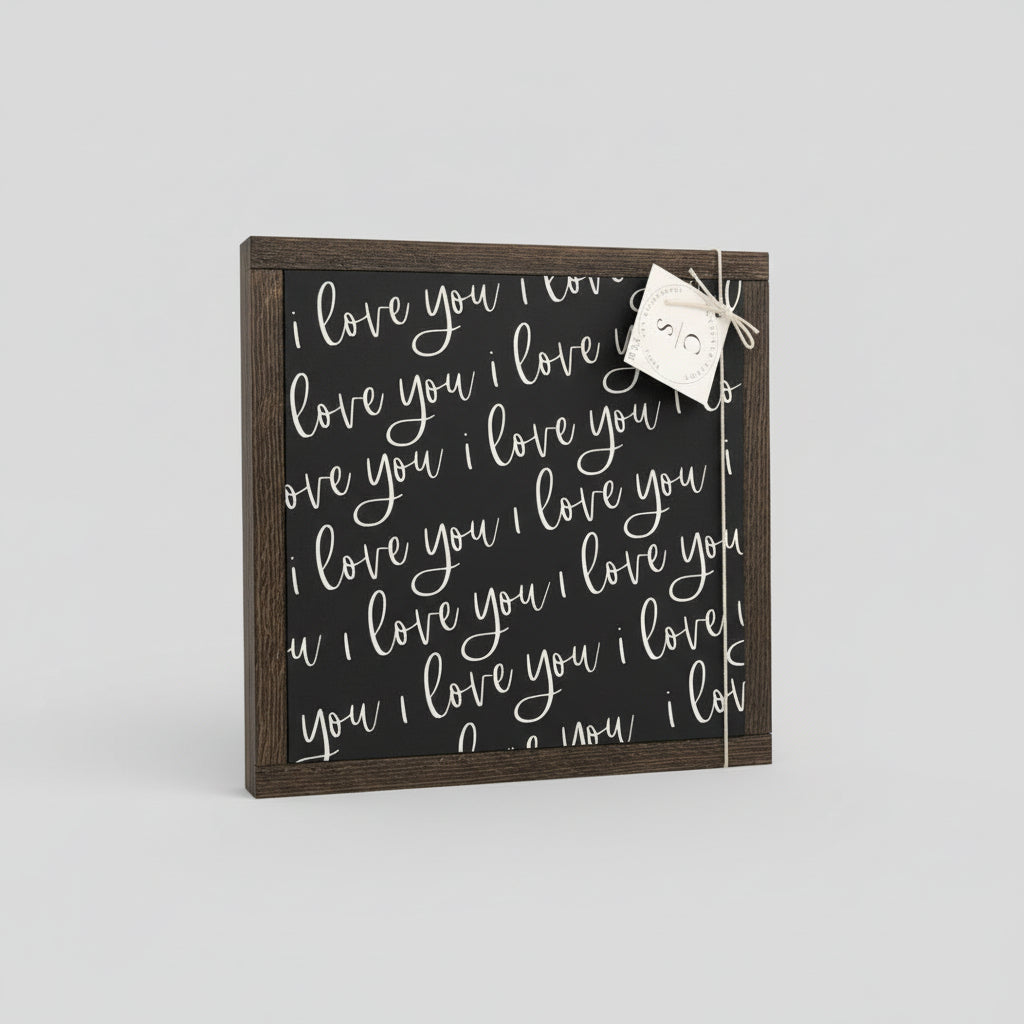 i love you i love
love you i love
love you i love you i lo
i love you i love you i
u i love you i love you
you i love you i love
you i lov
C
S